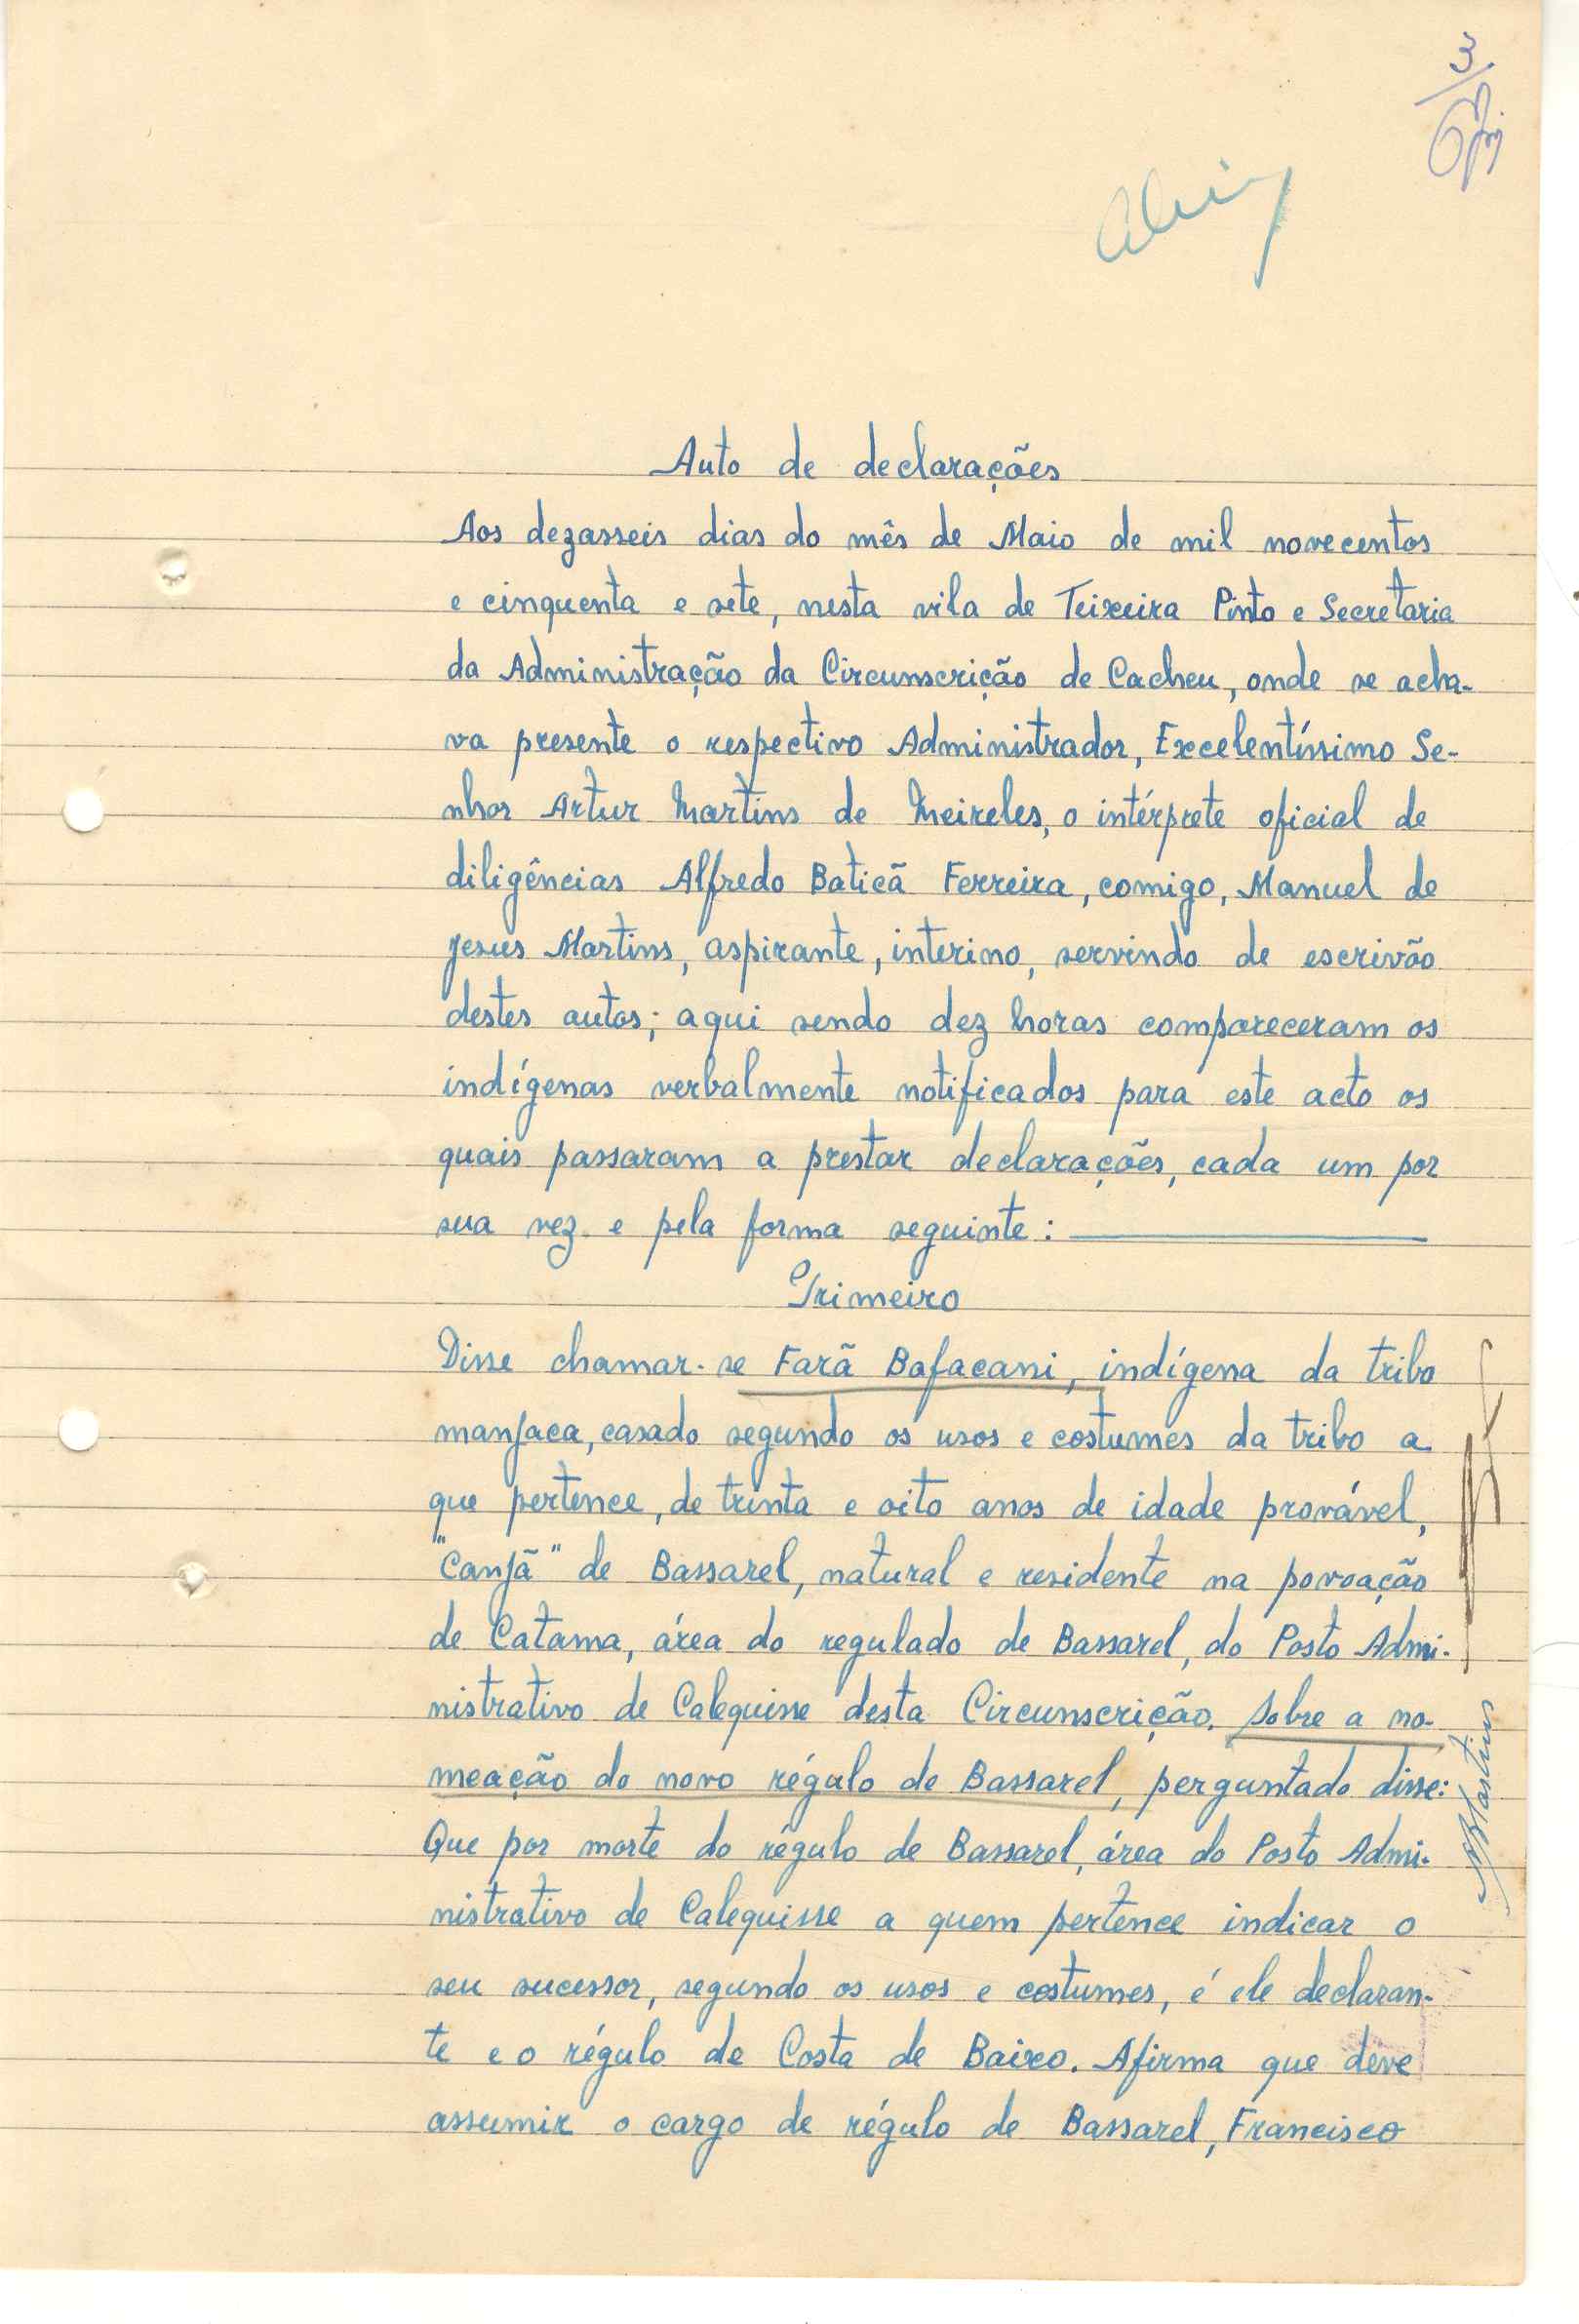 3
Auto de declarações
Aos dezasseis dias do mês de Maio de mil novecentos
e cinquenta e sete, nesta vila de Teixeira Pinto e Secretaria
da Administração da Circunscrição de Cacheu, onde se acha-
va presente o respectivo Administrador, Excelentíssimo Se-
nhor Artur Martins de Meireles, o intérprete oficial de
diligências Alfredo Baticã Ferreira, comigo, Manuel de
Jesus Martins, aspirante, interino, servindo de escrivão
destes autos; aqui sendo dez horas compareceram os
indígenas verbalmente notificados para este acto os
quais passaram a prestar declarações, cada um por
sua vez e pela forma seguinte:
Primeiro
Disse chamar-se Farã Bafacani, indígena da tribo
manjaca, casado segundo os usos e costumes da tribo a
que pertence, de trinta e oito anos de idade provável,
"Canjã" de Bassarel, natural e residente na povoação
de Catama, área do regulado de Bassarel, do Posto Admi-
nistrativo de Calequisse desta Circunscrição. Sobre a no-
meação do novo régulo de Bassarel, perguntado disse:
Que por morte do régulo de Bassarel, área do Posto Admi-
nistrativo de Calequisse a quem pertence indicar o
seu sucessor, segundo os usos e costumes, é ele declaran-
te e o régulo de Costa de Baixo. Afirma que deve
assumir o cargo de régulo de Bassarel, Francisco
Martins